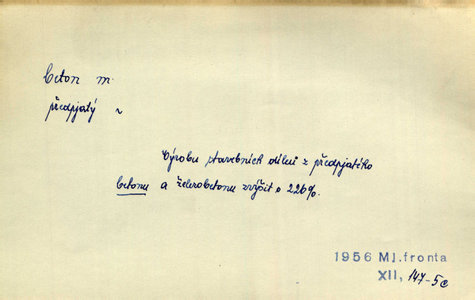 beton m.
předpjatý ~
Výrobu stavebních dílců z předpjatého
betonu a železobetonu zvýšit o 220%.
1956 Ml.fronta
XII, 147-5c